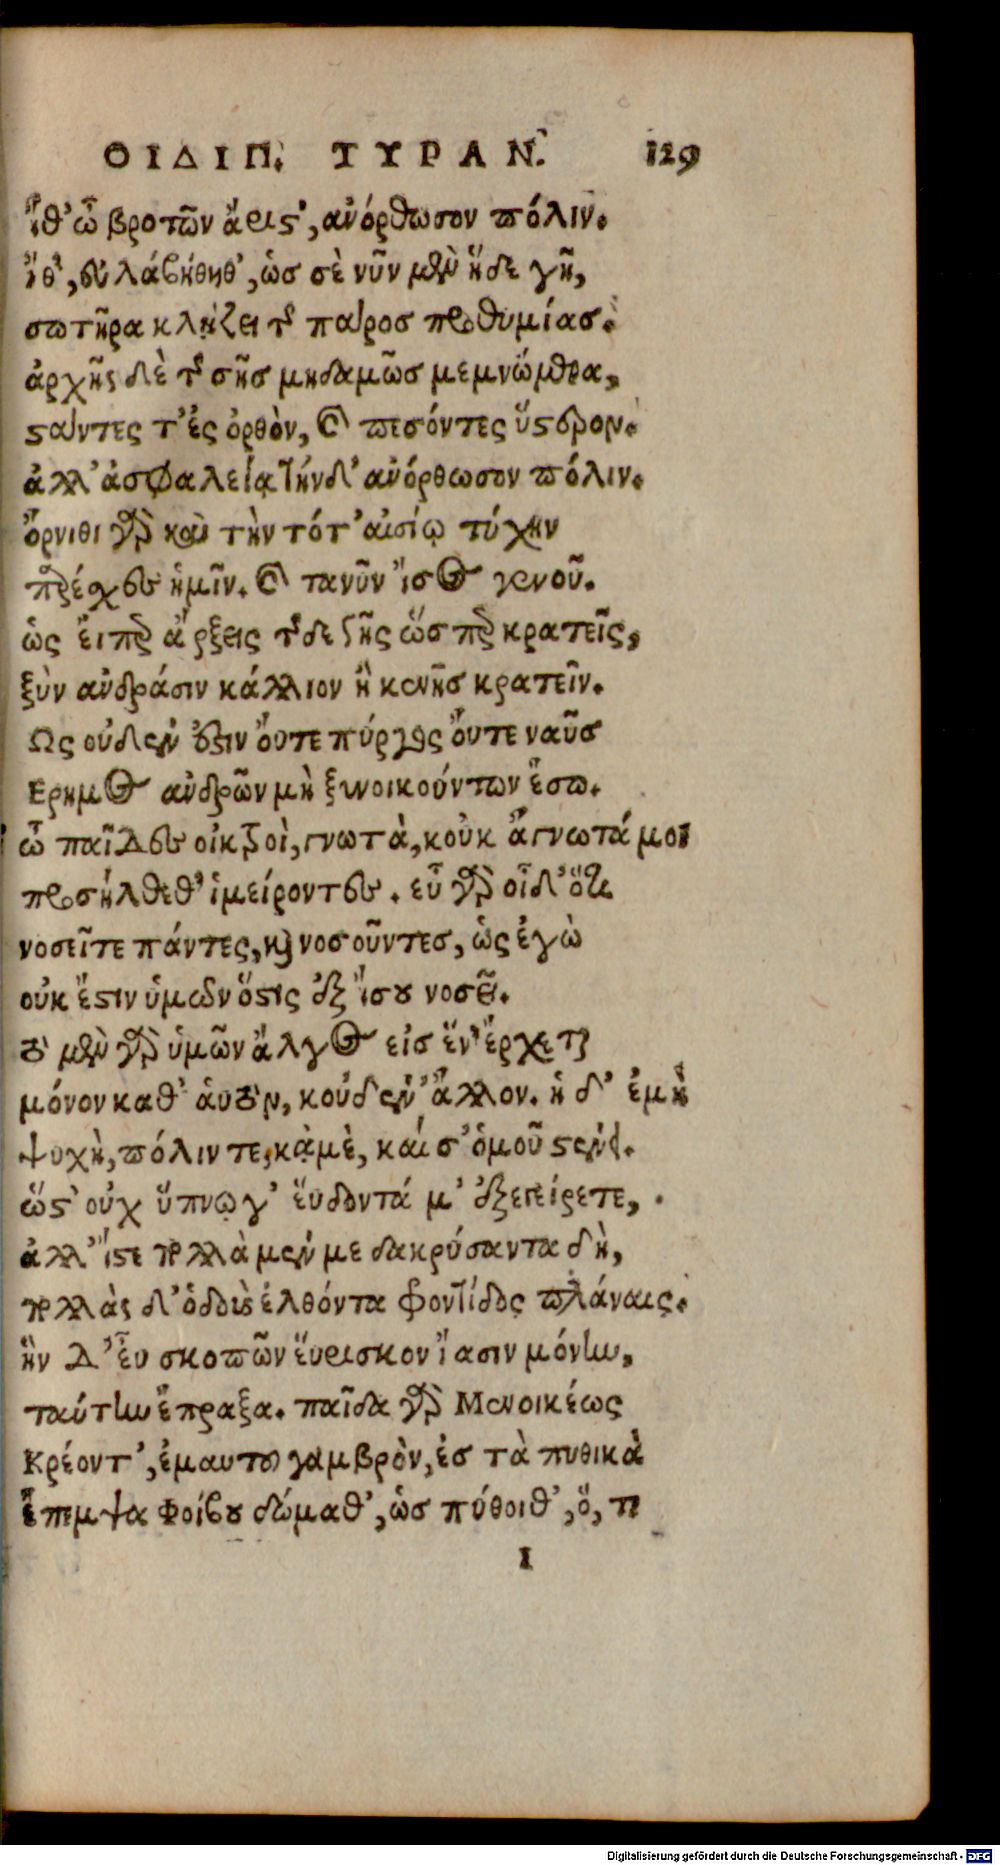 ΟΙΔΙΠ. ΤΥΡΑΝ. 129
Ἴθ' ὦ βροτῶν ἄριστ', ἀνόρθωσον πόλιν.
ἴθ', εὐλαβήθηθ', ὡς σὲ νῦν μὲν ἥδε γῆ,
σωτῆρα κλῄζει τῆς πάρος προθυμίας.
ἀρχῆς δὲ τῆς σῆς μηδαμῶς μεμνώμεθα,
στάντες τ' ἐς ὀρθὸν, καὶ πεσόντες ὕστερον.
ἀλλ' ἀσφαλείᾳ τήνδ' ἀνόρθωσον πόλιν.
ὄρνιθι γὰρ καὶ τὴν τότ' αἰσίῳ τύχην
παρέσχες ἡμῖν. καὶ τανῦν ἴσος γενοῦ.
ὡς εἴπερ ἄρξεις τῆσδε γῆς ὥσπερ κρατεῖς,
ξὺν ἀνδράσιν κάλλιον ἢ κενῆς κρατεῖν.
Ως οὐδέν ἐστιν οὔτε πύργος οὔτε ναῦς
Ερημος ἀνδρῶν μὴ ξυνοικούντων ἔσω.
ὦ παῖδες οἰκτροὶ, γνωτὰ, κοὐκ ἄγνωτά μοι
προσήλθεθ' ἱμείροντες. εὖ γὰρ οἶδ' ὅτι
νοσεῖτε πάντες, καὶ νοσοῦντες, ὡς ἐγὼ
οὐκ ἔστιν ὑμῶν ὅστις ἐξ ἴσου νοσεῖ.
τὸ μὲν γὰρ ὑμῶν ἄλγος εἰς ἕν' ἔρχεται
μόνον καθ' αὑτὸν, κοὐδέν' ἄλλον. ἡ δ' ἐμὴ
ψυχὴ, πόλιν τε, κἀμὲ, καί σ' ὁμοῦ στένει.
ὥστ' οὐχ ὕπνῳ γ' εὕδοντά μ' ἐξεγείρετε,
ἀλλ' ἴστε πολλὰ μέν με δακρύσαντα δὴ,
πολλὰς δ' ὁδοὺς ἐλθόντα φροντίδος πλάναις.
ἣν δ' εὖ σκοπῶν εὕρισκον ἴασιν μόνην,
ταύτην ἔπραξα. παῖδα γὰρ Μενοικέως
Κρέοντ', ἐμαυτοῦ γαμβρὸν, ἐς τὰ πυθικὰ
ἔπεμψα Φοίβου δώμαθ', ὡς πύθοιθ', ὅ, τι
I
Digitalisierung gefördert durch die Deutsche Forschungsgemeinschaft - DFG